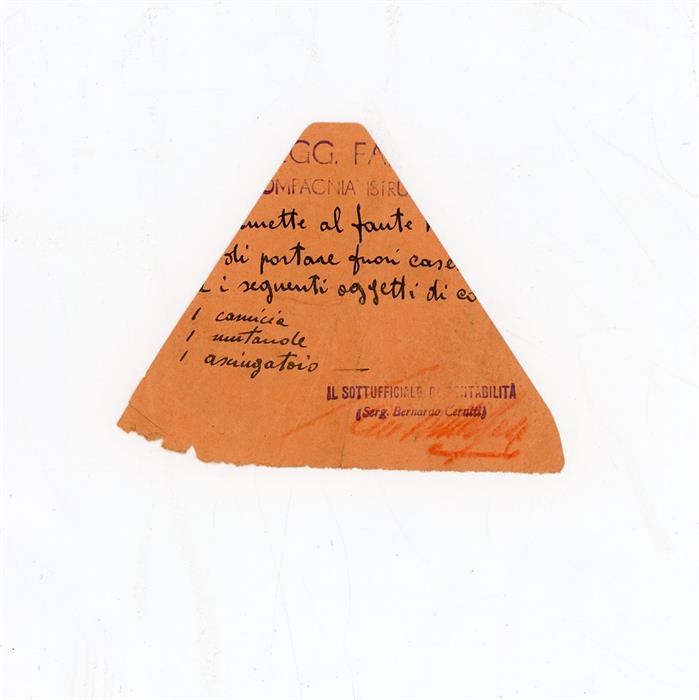 GG. FA
OMPAGNIA ISTRU
mette al fante
di portare fuori case
i seguenti oggetti di co
1 camicia
1 mutande
1 asciugatoio —
IL SOTTUFFICIALE DI CONTABILITÀ
(Serg. Bernardo Cerutti)